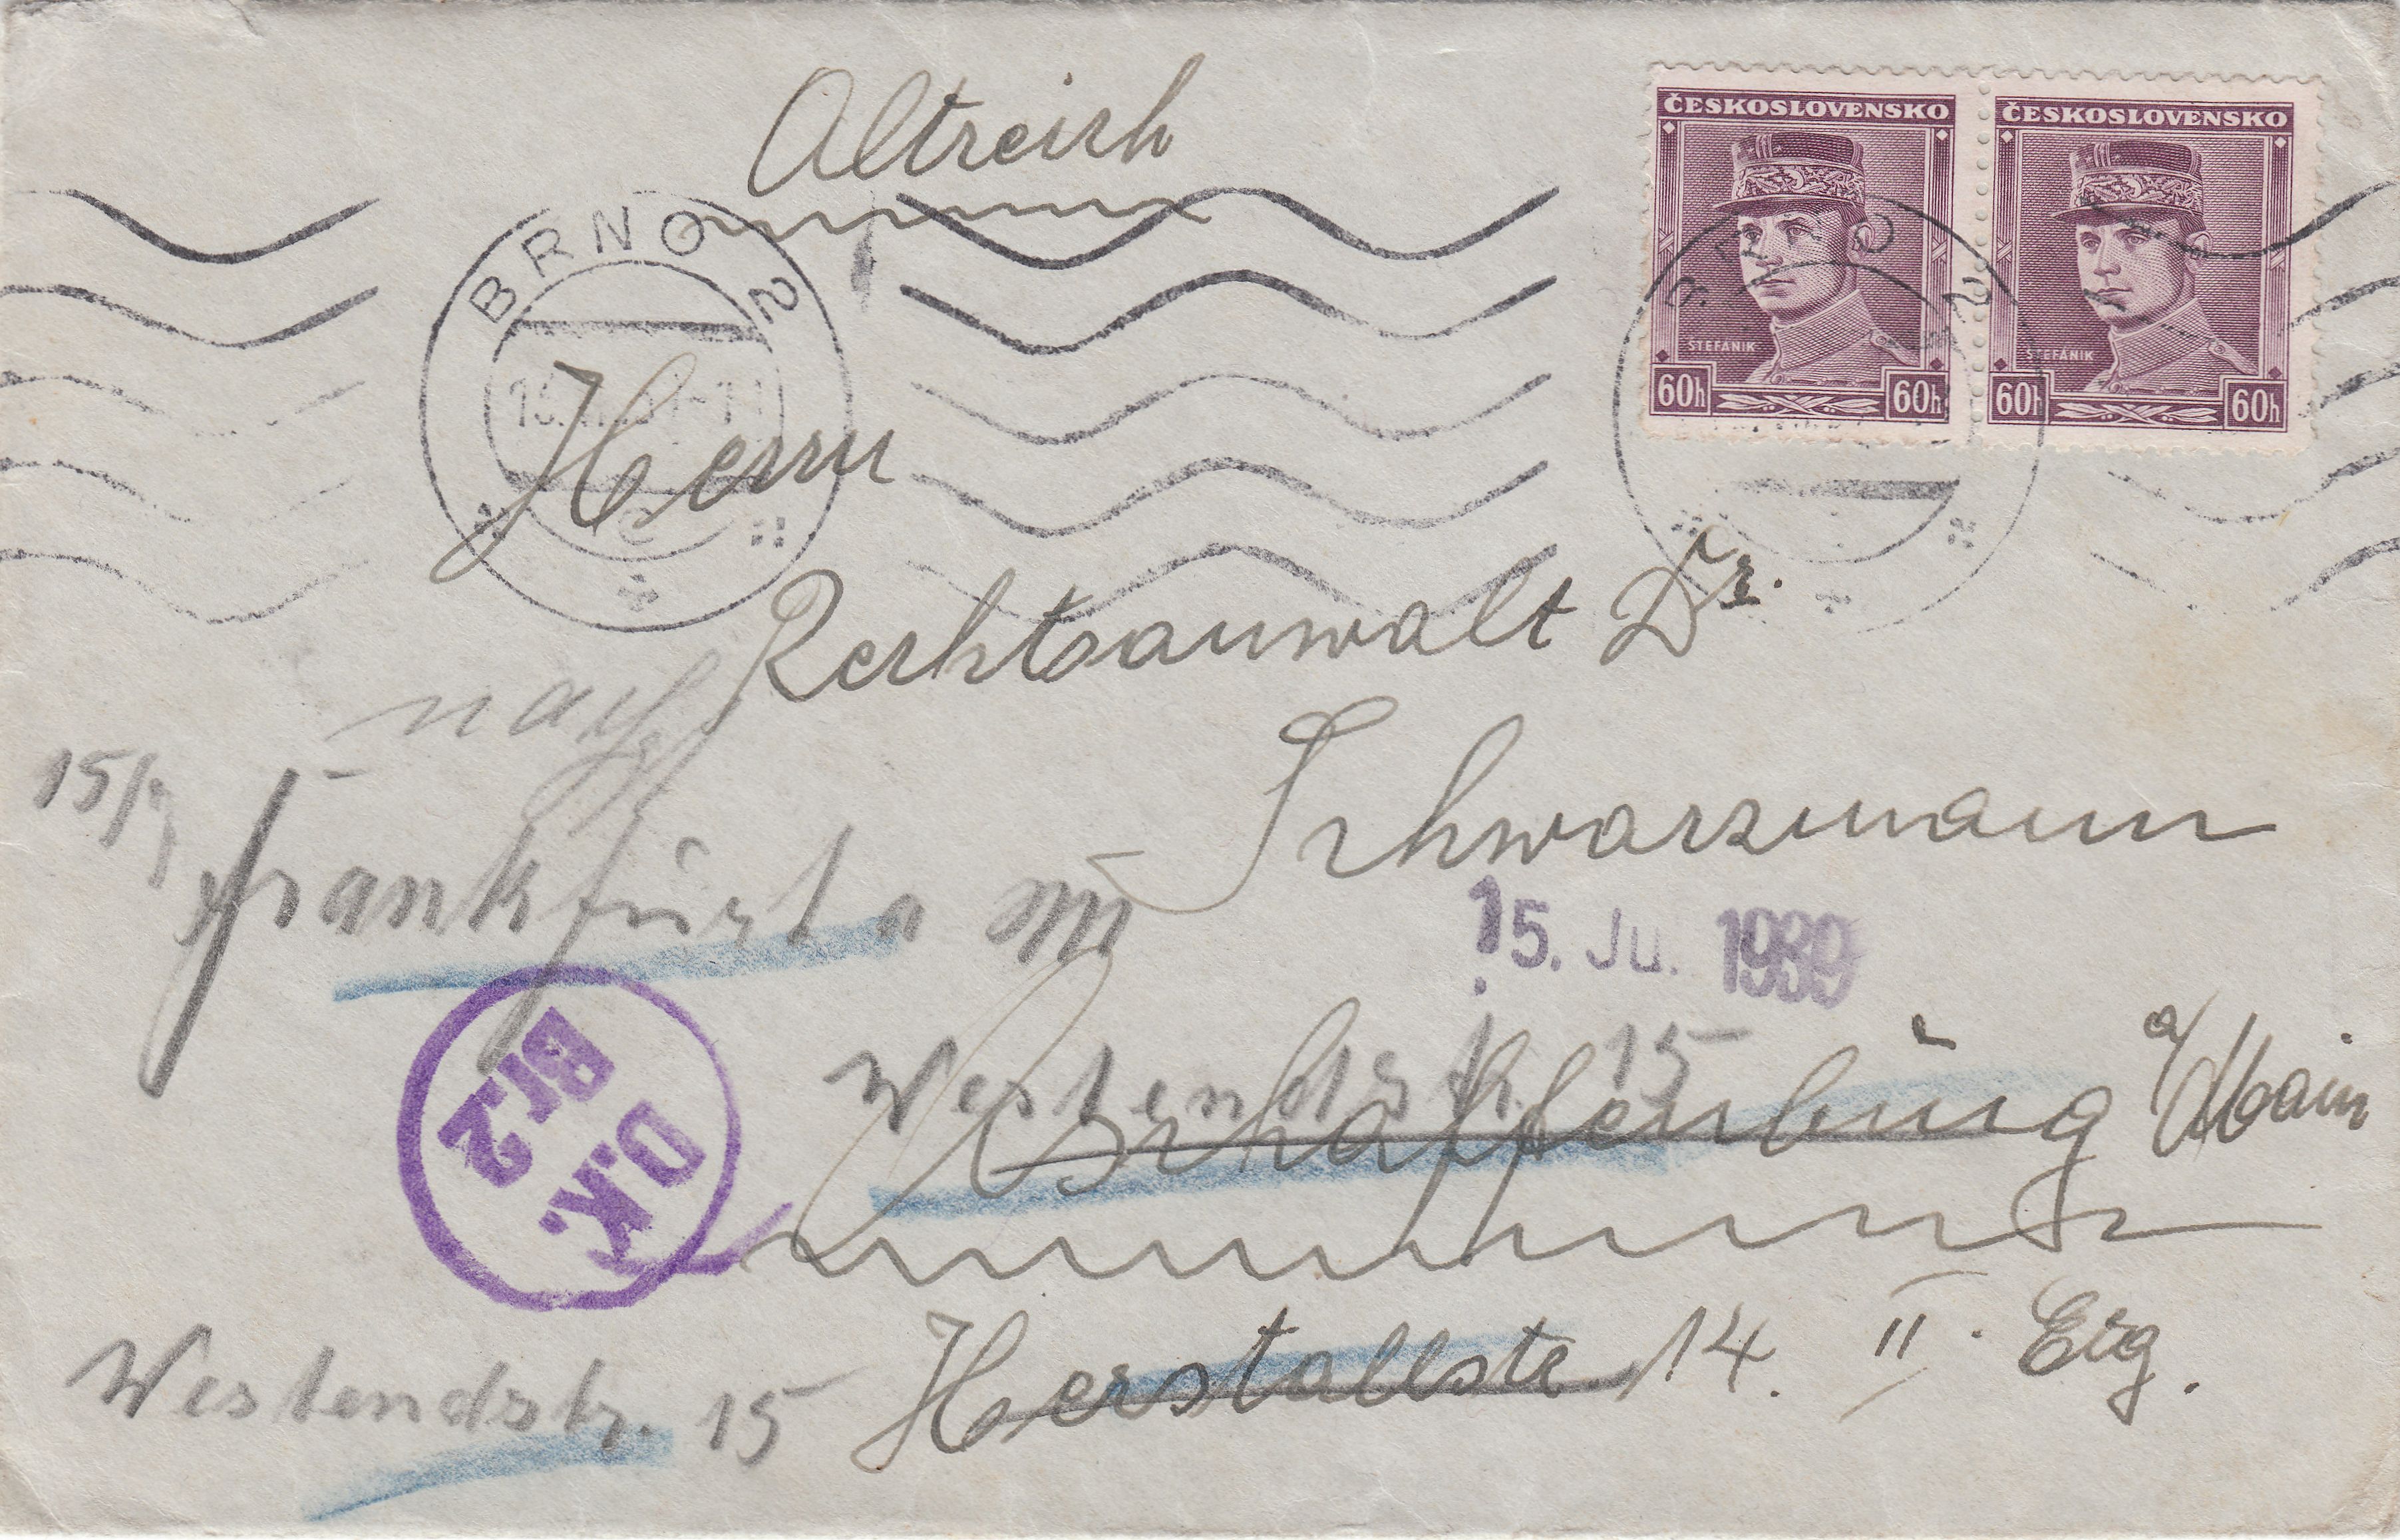 Altreich
ČESKOSLOVENSKO
ŠTEFÁNIK
60h 60h
ČESKOSLOVENSKO
ŠTEFÁNIK
60h 60h
BRNO 2
BRNO 2
Herrn
Rechtsanwalt Dr.
Schwarzmann
nach
15/7
Frankfurt a M
15. Ju. 1939
Westendstr. 15
Aschaffenburg a/Main
D.K.
Br.2
Herstallstr. 14. II. Etg.
Westendstr. 15